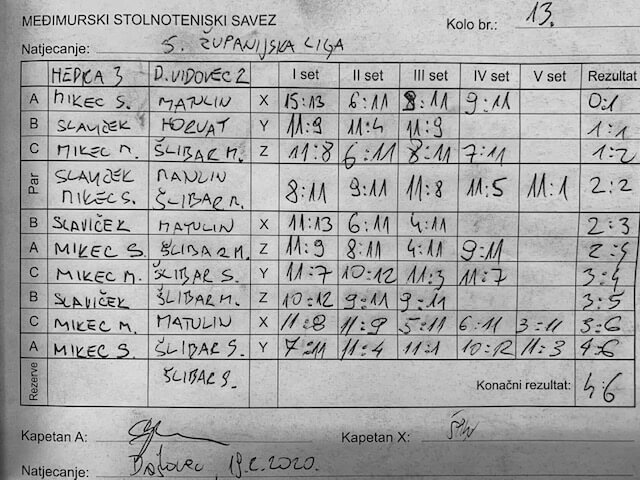 MEĐIMURSKI STOLNOTENISKI SAVEZ Kolo br.: 13.
Natjecanje: 5. ŽUPANIJSKA LIGA
HEPKA 3 D. VIDOVEC 2 I set II set III set IV set V set Rezultat
A MIKEC S. MATULIN X 15:13 6:11 8:11 9:11 0:1
B SLAVIČEK HORVAT Y 11:9 11:4 11:9 1:1
C MIKEC M. ŠLIBAR M. Z 11:8 6:11 8:11 7:11 1:2
Par SLAVIČEK MIKEC S. ŠLIBAR M. 8:11 9:11 11:8 11:5 11:1 2:2
B SLAVIČEK MATULIN X 11:13 6:11 4:11 2:3
A MIKEC S. ŠLIBAR M. Z 11:9 8:11 4:11 9:11 2:4
C MIKEC M. ŠLIBAR S. Y 11:7 10:12 11:3 11:7 3:4
B SLAVIČEK ŠLIBAR M. Z 10:12 9:11 9:11 3:5
C MIKEC M. MATULIN X 11:8 11:9 5:11 6:11 3:11 3:6
A MIKEC S. ŠLIBAR S. Y 7:11 11:4 11:1 10:12 11:3 4:6
Rezerve ŠLIBAR S. Konačni rezultat: 4:6
Kapetan A: Kapetan X:
Natjecanje: 2020.